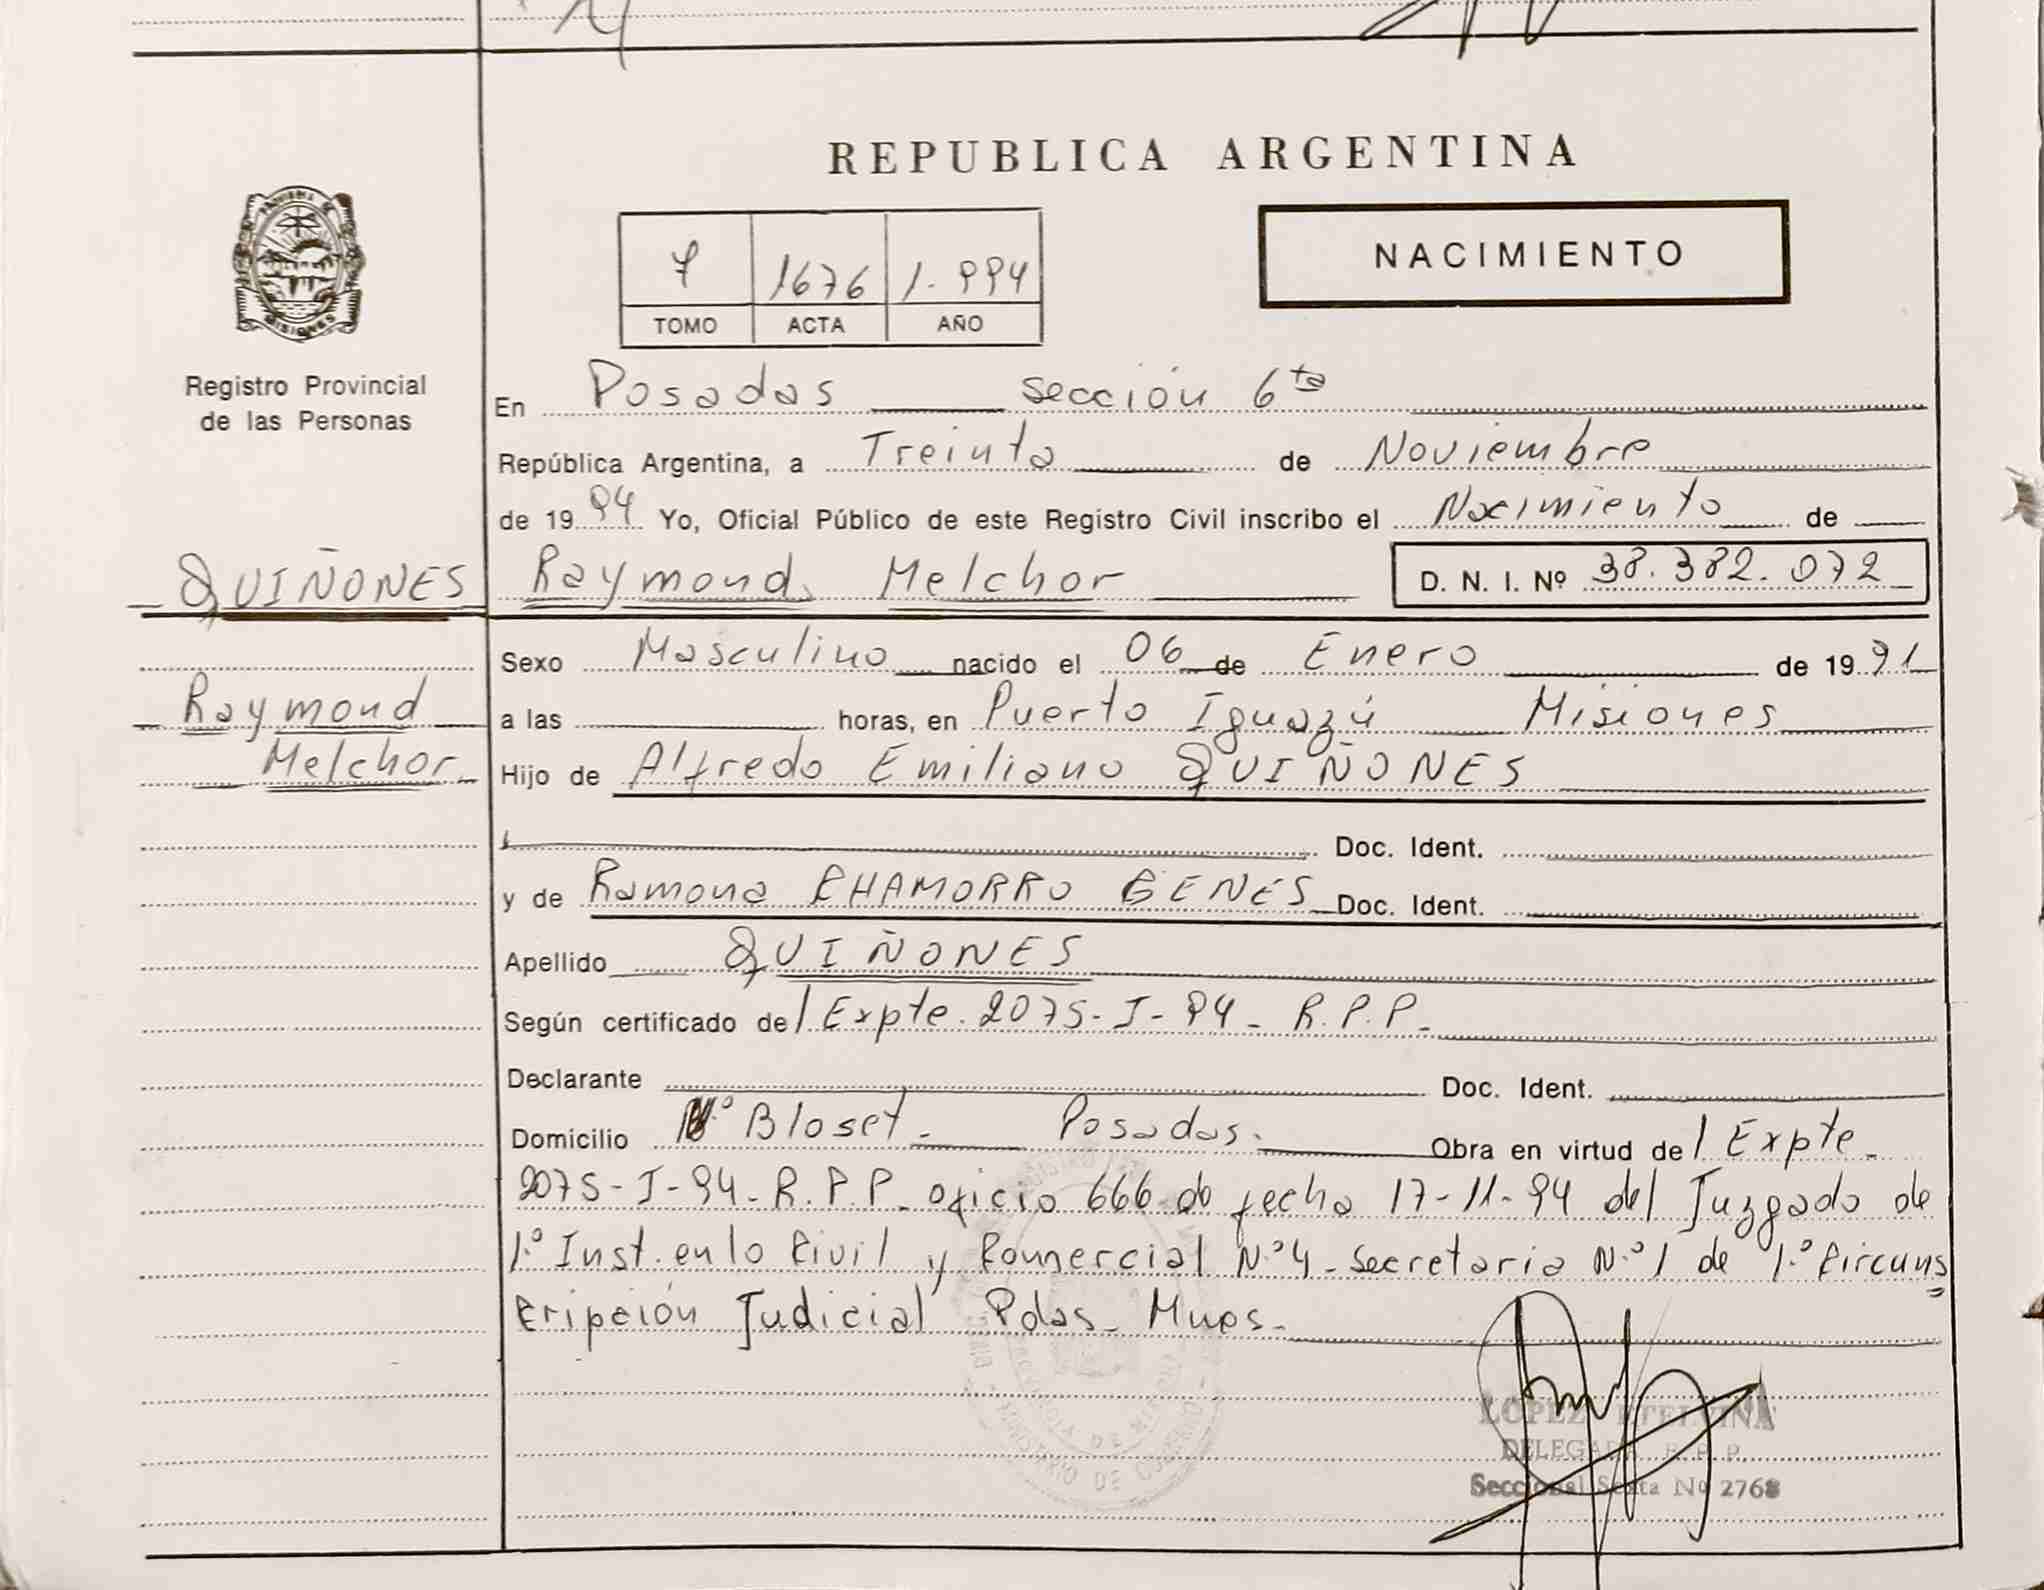 REPUBLICA ARGENTINA
NACIMIENTO
7 1676 1.994
TOMO ACTA AÑO
MISIONES
Registro Provincial
de las Personas
En Posadas sección 6ta
República Argentina, a Treinta de Noviembre
de 1994 Yo, Oficial Público de este Registro Civil inscribo el Nacimiento de
QUIÑONES Raymond Melchor D. N. I. Nº 38.382.072
Sexo Masculino nacido el 06 de Enero de 1991
Raymond a las horas, en Puerto Iguazú Misiones
Melchor Hijo de Alfredo Emiliano QUIÑONES
Doc. Ident.
y de Ramona CHAMORRO GENES Doc. Ident.
Apellido QUIÑONES
Según certificado de Expte. 2075-I-94- R.P.P.
Declarante Doc. Ident.
Domicilio Bº Bloset - Posadas. Obra en virtud de Expte.
2075-I-94-R.P.P. oficio 666 de fecha 17-11-94 del Juzgado de
1.º Inst. en lo Civil y Comercial N.º 4 - Secretaria N.º 1 de 1.º Circuns
cripción Judicial Pdas- Mnes-
LOPEZ ETELVINA
DELEGADA R. P. P.
Seccional Sexta Nº 2768
MINISTARIO DE GOBIERNO